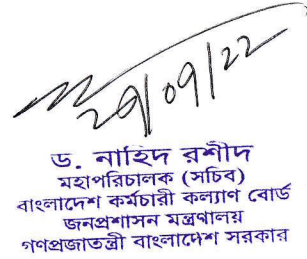 29/09/22
ড. নাহিদ রশীদ
মহাপরিচালক (সচিব)
বাংলাদেশ কর্মচারী কল্যাণ বোর্ড
জনপ্রশাসন মন্ত্রণালয়
গণপ্রজাতন্ত্রী বাংলাদেশ সরকার